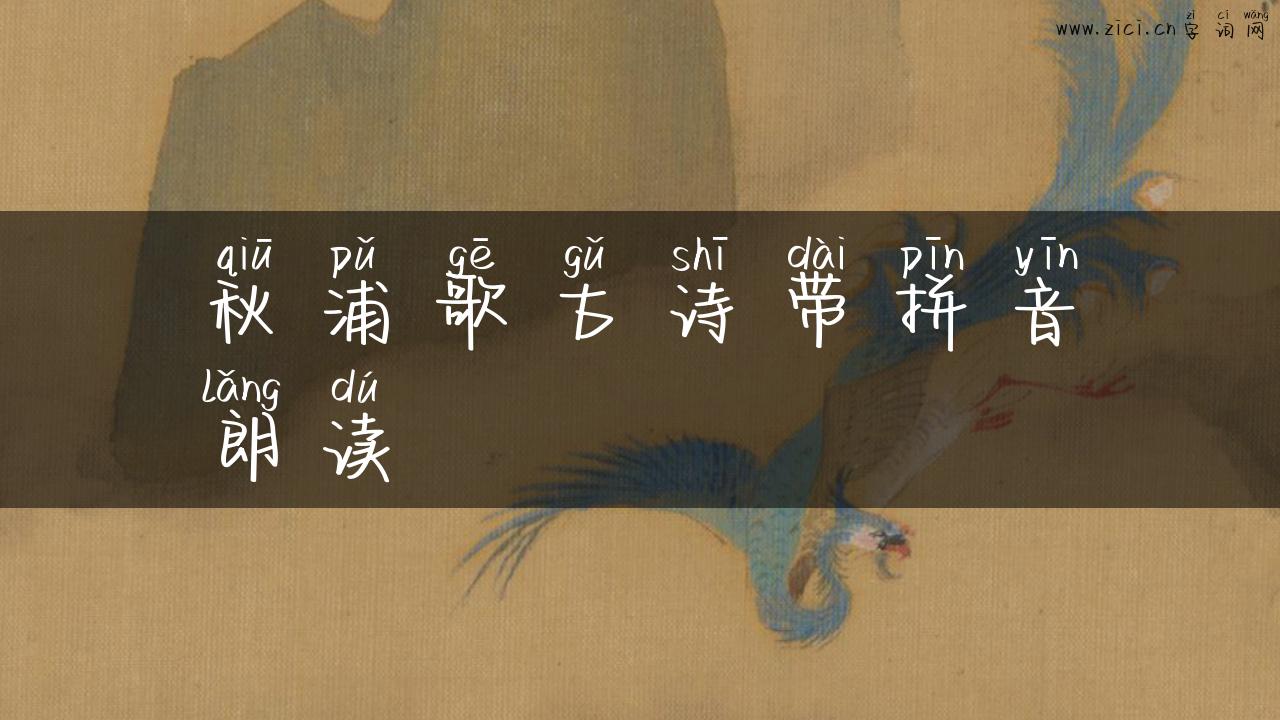 zì cí wǎng
www.zici.cn 字词网
qiū pǔ gē gǔ shī dài pīn yīn
秋浦歌古诗带拼音
lǎng dú
朗读